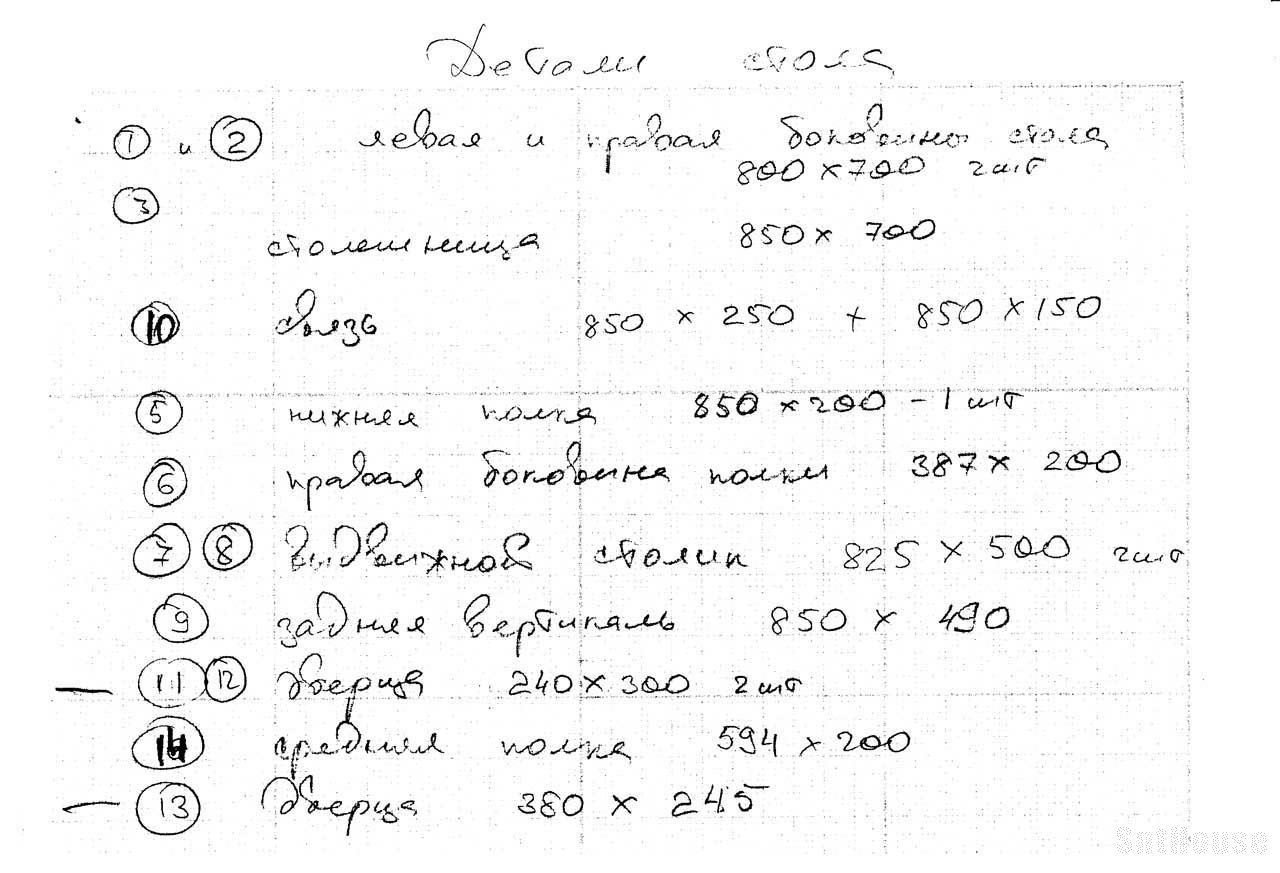 Детали стола
1 и 2 левая и правая боковины стола
800 x 700 2 шт
3
столешница 850 x 700
10 связь 850 x 250 + 850 x 150
5 нижняя полка 850 x 200 - 1 шт
6 правая боковина полки 387 x 200
7 8 выдвижной столик 825 x 500 2 шт
9 задняя вертикаль 850 x 490
— 11 12 дверца 240 x 300 2 шт
14 средняя полка 594 x 200
— 13 дверца 380 x 245
SntHouse